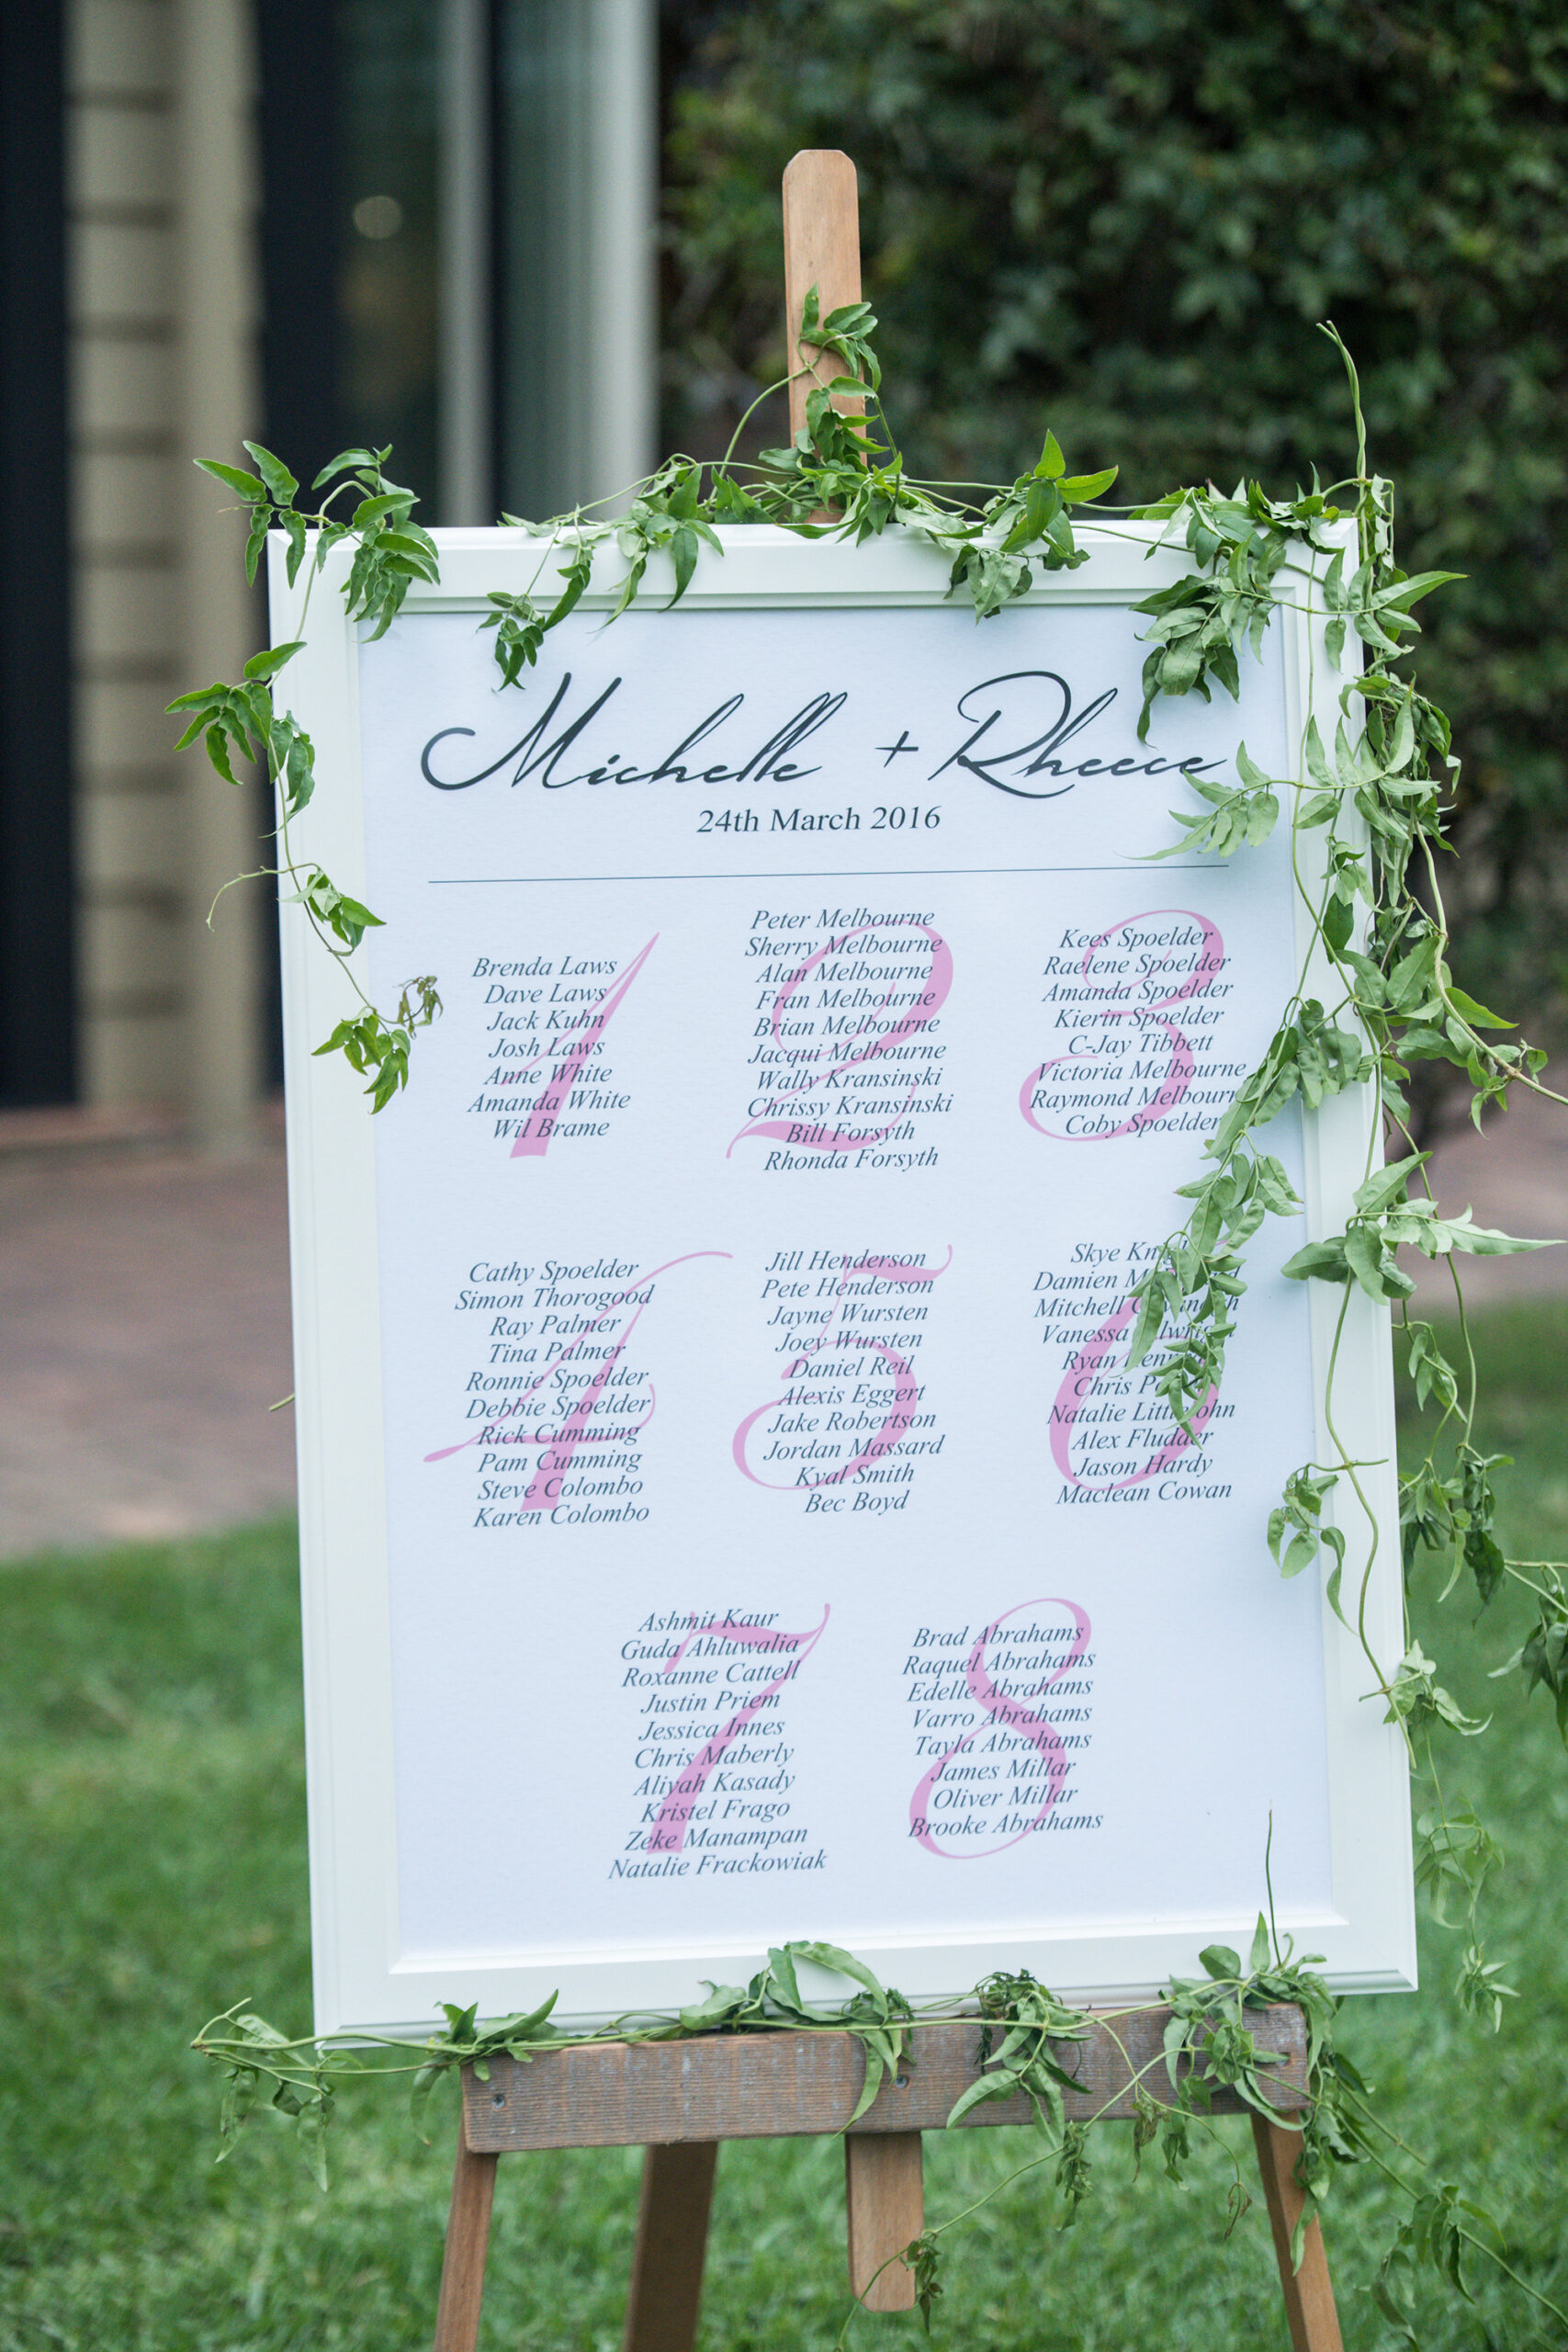 Michelle + Rheece
24th March 2016
Brenda Laws
Dave Laws
Jack Kuhn
Josh Laws
Anne White
Amanda White
Wil Brame
1
Peter Melbourne
Sherry Melbourne
Alan Melbourne
Fran Melbourne
Brian Melbourne
Jacqui Melbourne
Wally Kransinski
Chrissy Kransinski
Bill Forsyth
Rhonda Forsyth
2
Kees Spoelder
Raelene Spoelder
Amanda Spoelder
Kierin Spoelder
C-Jay Tibbett
Victoria Melbourne
Raymond
Coby Spoelder
3
Cathy Spoelder
Simon Thorogood
Ray Palmer
Tina Palmer
Ronnie Spoelder
Debbie Spoelder
Rick Cumming
Pam Cumming
Steve Colombo
Karen Colombo
4
Jill Henderson
Pete Henderson
Jayne Wursten
Joey Wursten
Daniel Reil
Alexis Eggert
Jake Robertson
Jordan Massard
Kyal Smith
Bec Boyd
5
Skye
Damien
Mitchell
Vanessa
Ryan
Chris
Natalie Littlejohn
Alex Fludder
Jason Hardy
Maclean Cowan
6
Ashmit Kaur
Guda Ahluwalia
Roxanne Cattell
Justin Priem
Jessica Innes
Chris Maberly
Aliyah Kasady
Kristel Frago
Zeke Manampan
Natalie Frackowiak
7
Brad Abrahams
Raquel Abrahams
Edelle Abrahams
Varro Abrahams
Tayla Abrahams
James Millar
Oliver Millar
Brooke Abrahams
8